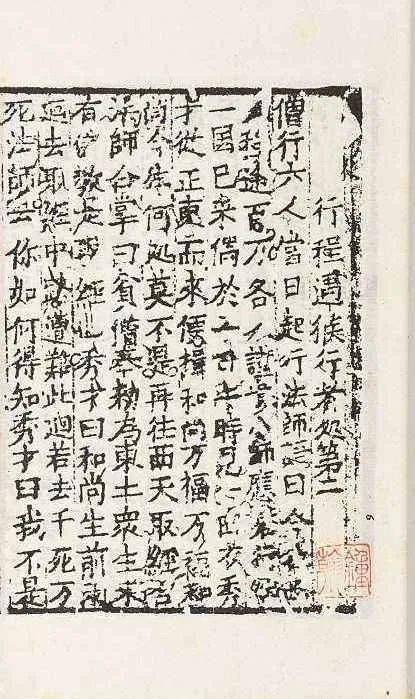 行程遇猴行者処第二
僧行六人當日起行法師語曰今
程途百万各人謹慎小師應諾行經
一國已來偶於一日午時見一白衣秀
才從正東而來便揖和尚万福万福和
尚今往何処莫不是再往西天取經否
法師合掌曰貧僧奉勑為東土眾生未
有佛教是取經也秀才曰和尚生前兩
迴去取經中路遭難此迴若去千死万
死法師云你如何得知秀才曰我不是